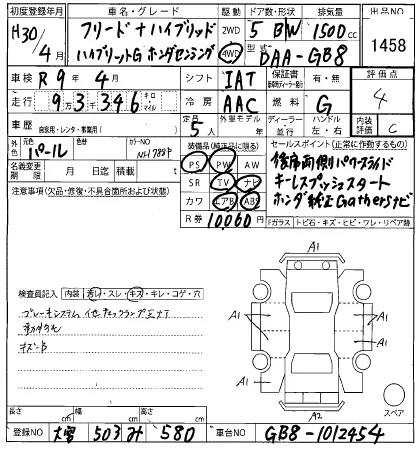 初度登録年月 車名・グレード 駆動 ドア数・形状 排気量 出品NO
H30/4月 フリード+ハイブリッド 2WD 4WD 5 BW 1500cc 1458
ハイブリットG ホンダセンシング 型式 DAA-GB8
車検 R9年4月 シフト IAT 保証書 有・無 評価点 4
走行 93,346 キロ マイル 冷房 AAC 燃料 G
車歴 自家用・レンタ・事業用( ) 定員 5人 外車モデル ディーラー 並行 ハンドル 左・右 内装評価 C
外色 元色 パール 色替 カラーNO NH788P 装備品(純正品に限る) セールスポイント(正常に作動するもの)
名義変更期限 月 日迄 積載量 PS PW AW 後席両側パワースライド
注意事項(欠品・修復・不具合箇所および状態) SR TV ナビ キーレスプッシュスタート
カワ エアB ABS ホンダ純正Gathersナビ
R券 10,060 円 Fガラス トビ石・キズ・ヒビ・ワレ・リペア跡
検査員記入 内装 汚れ・スレ・キズ・キレ・コゲ・穴
キズB
A1
A1 A1
A1 A1
A2
スペア
長さ cm 幅 cm 高さ cm
登録NO 大宮 503 み 580 車台NO GB8-1012454